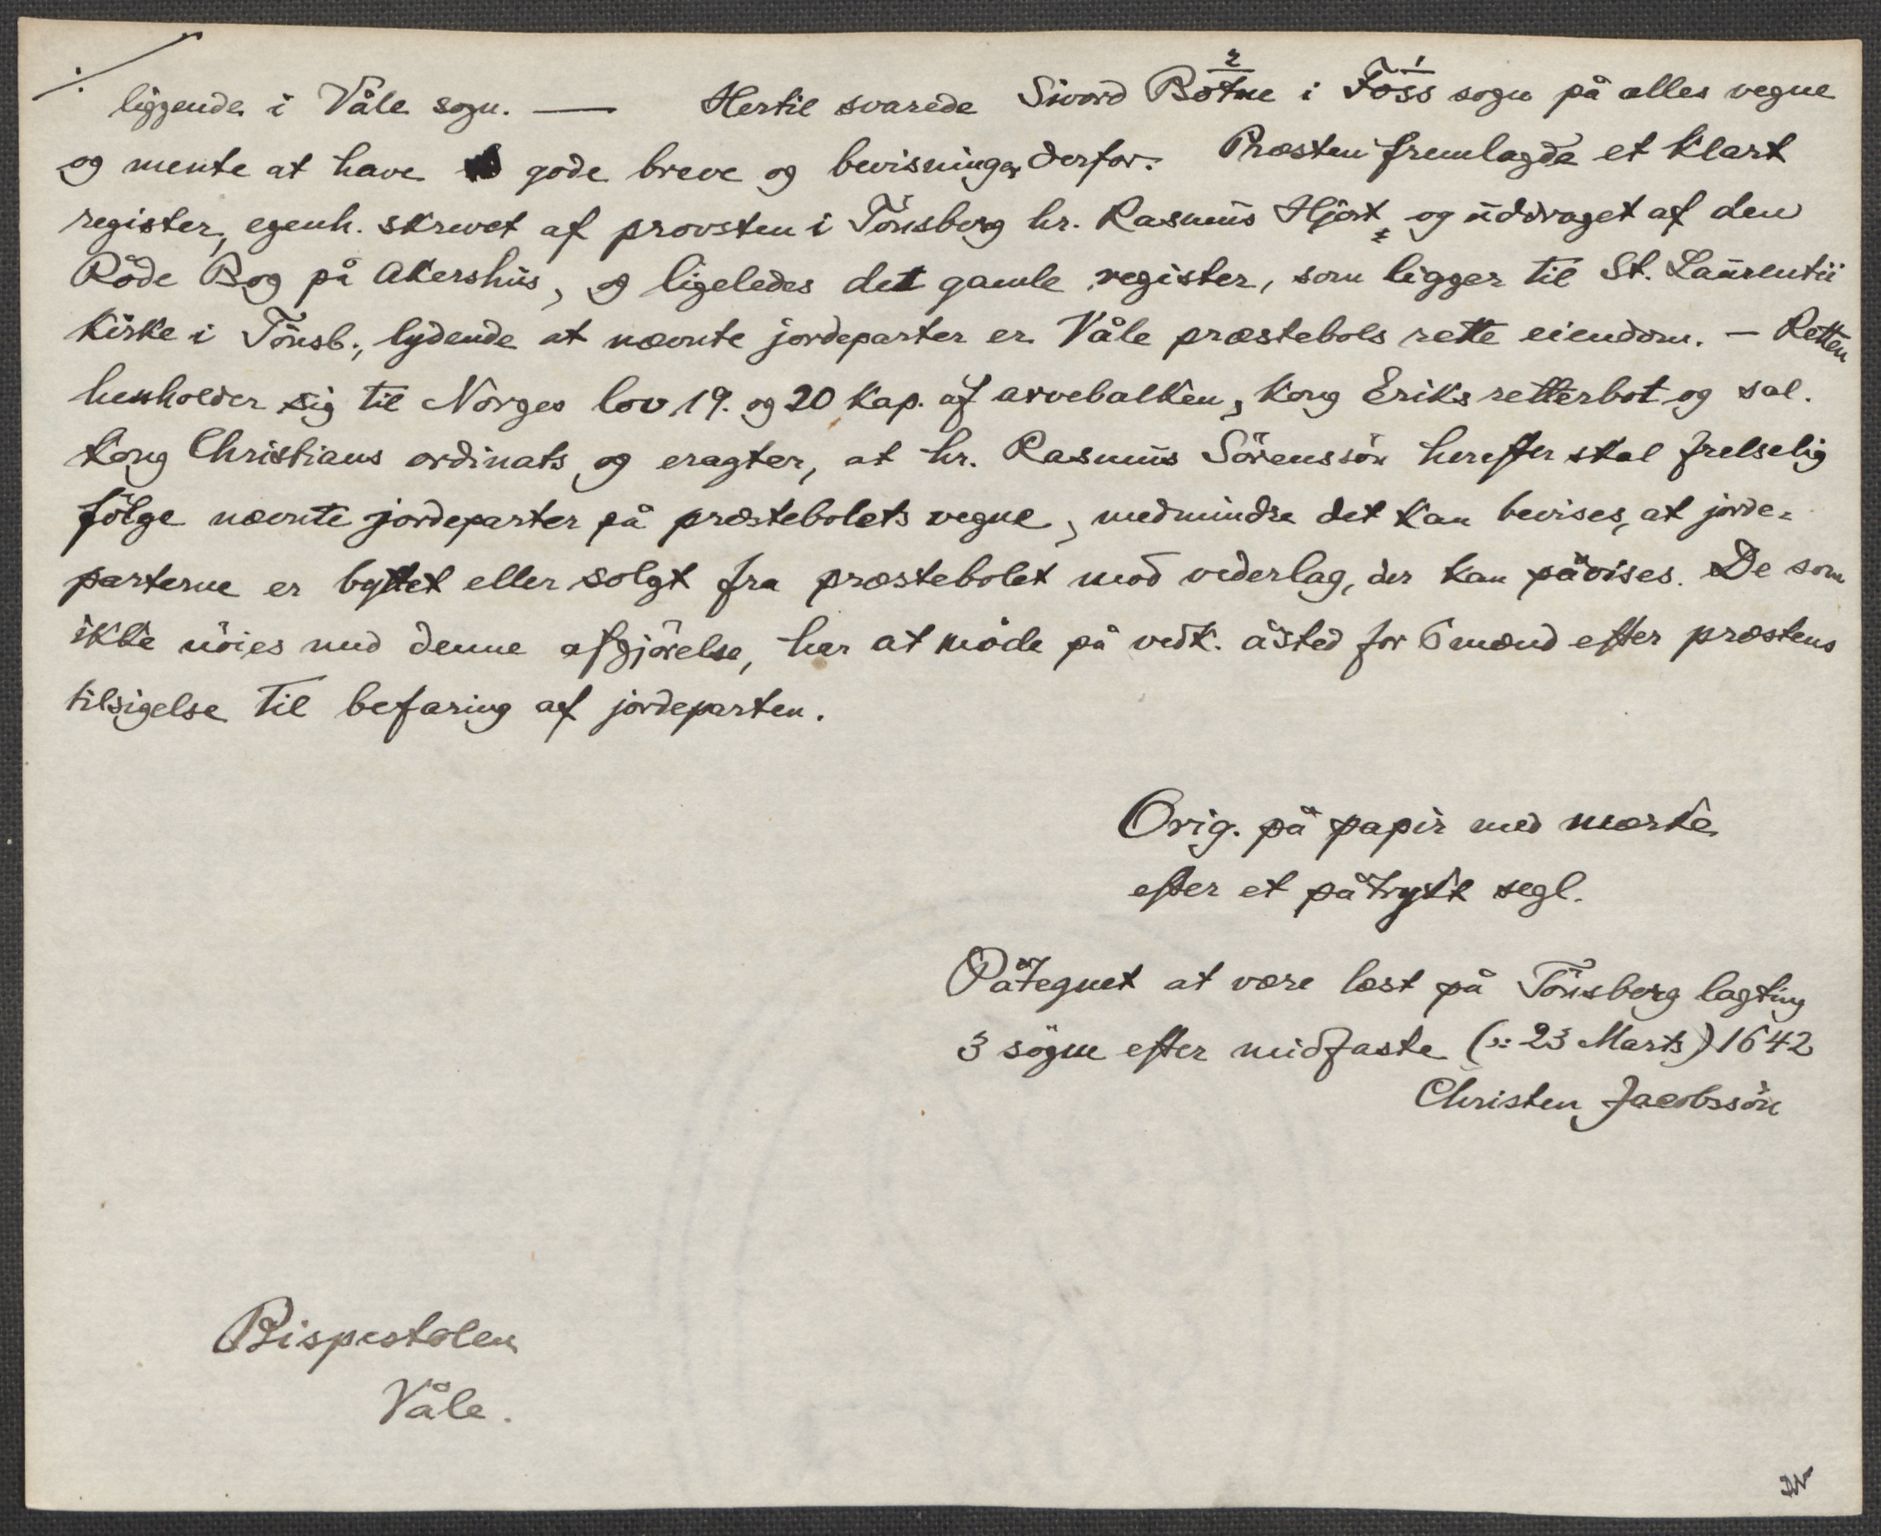 ./. liggende i Våle sogn. — Hertil svarede Sivord Botne i Foss sogn på alles vegne
og mente at have gode breve og bevisninger derfor. Præsten fremlagde et klart
register, egenh. skrevet af provsten i Tönsberg hr. Rasmus Hjort, og uddraget af den
Röde Bog på Akershus, og ligeledes det gamle register, som ligger til St. Laurentii
Kirke i Tönsb., lydende at nævnte jordeparter er Våle præstebols rette eiendom. — Retten
henholder sig til Norges lov 19. og 20 kap. af arvebalken, kong Eriks retterbot og sal.
kong Christians ordinats og eragter, at hr. Rasmus Sörenssön herefter skal frelselig
fölge nævnte jordeparter på præstebolets vegne, medmindre det kan bevises, at jorde-
parterne er byttet eller solgt fra præstebolet mod vederlag, der kan påvises. De som
ikke nöies med denne afgjörelse, har at möde på vedk. åsted for 6 mænd efter præstens
tilsigelse til befaring af jordeparten.
Orig. på papir med mærke
efter et påtrykt segl.
Påtegnet at være læst på Tönsberg lagting
3 sögne efter midfaste (ɔ: 23 Marts) 1642
Christen Jacobssön
Bispestolen
Våle.